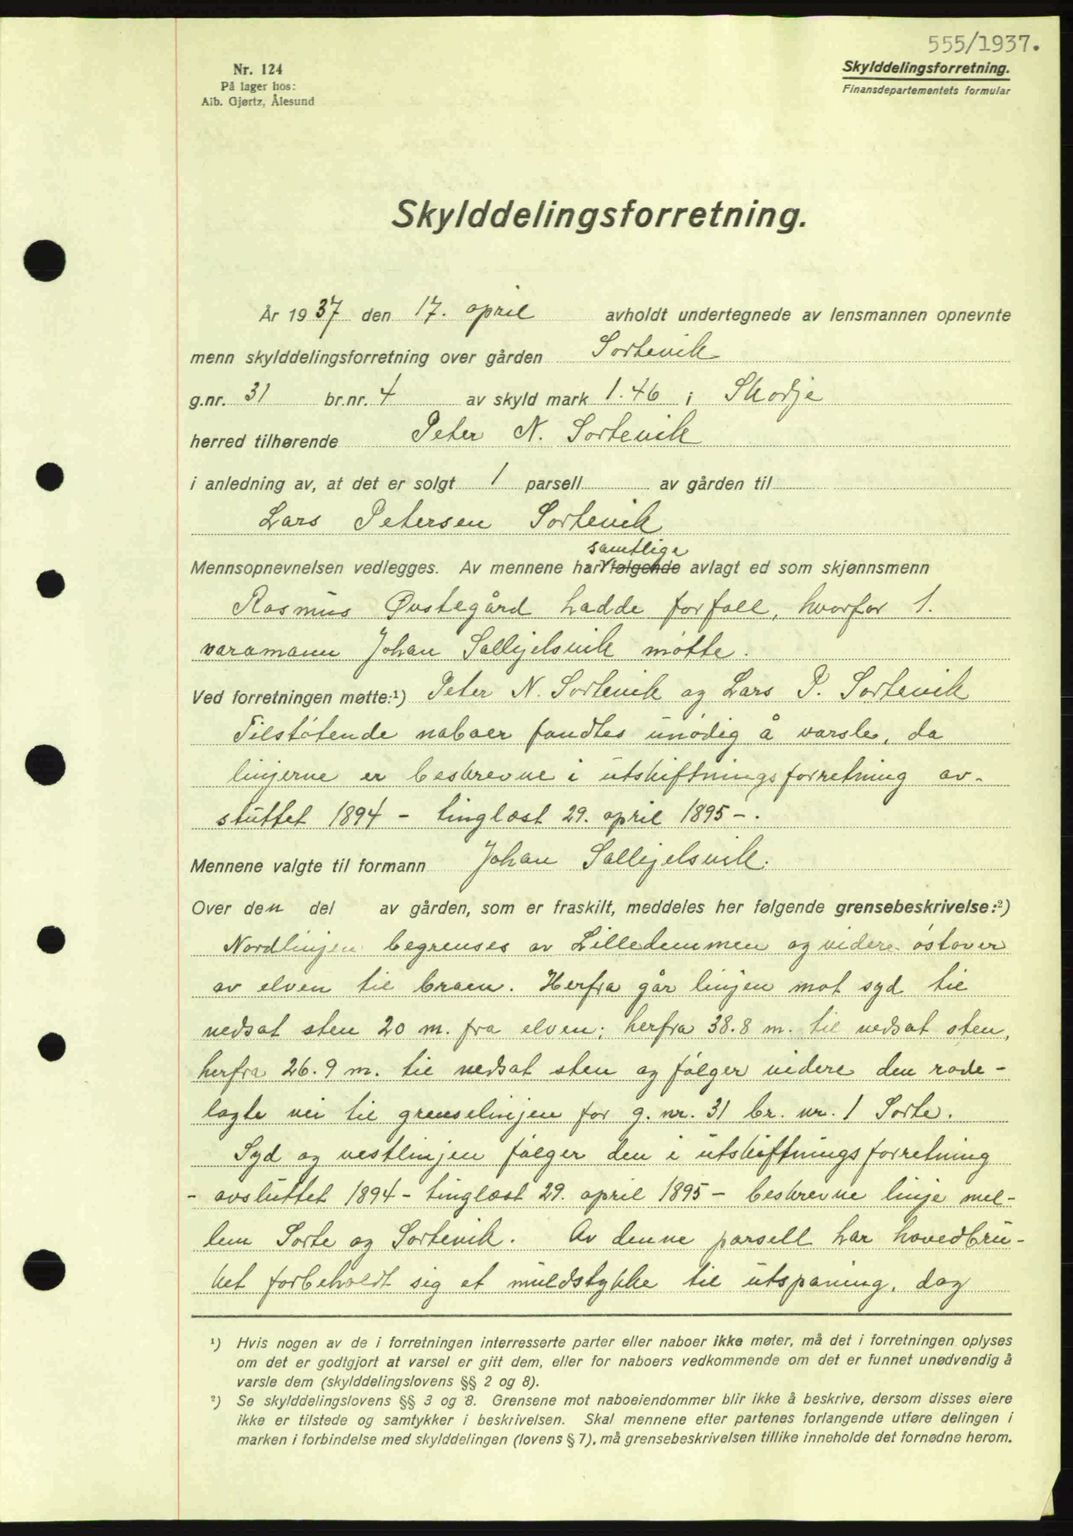 555/1937.
Nr. 124
På lager hos:
Alb. Gjørtz, Ålesund
Skylddelingsforretning.
Finansdepartementets formular
Skylddelingsforretning.
År 1937 den 17. april avholdt undertegnede av lensmannen opnevnte
menn skylddelingsforretning over gården Sortevik
g.nr. 31 br.nr. 4 av skyld mark 1.46 i Skodje
herred tilhørende Peter N. Sortevik
i anledning av, at det er solgt 1 parsell av gården til
Lars Petersen Sortevik
samtlige
Mennsopnevnelsen vedlegges. Av mennene har følgende avlagt ed som skjønnsmenn
Rasmus Øvstegård hadde forfall, hvorfor 1.
varamann Johan Sallejelsvik møtte.
Ved forretningen møtte:¹) Peter N. Sortevik og Lars P. Sortevik
Tilstøtende naboer fandtes unødig å varsle, da
linjerne er beskrevne i utskiftningsforretning av-
sluttet 1894 - tinglæst 29. april 1895 -.
Mennene valgte til formann Johan Sallejelsvik.
Over den del av gården, som er fraskilt, meddeles her følgende grensebeskrivelse:²)
Nordlinjen begrenses av Lilledemmen og videre østover
av elven til braen. Herfra går linjen mot syd til
nedsat sten 20 m. fra elven; herfra 38.8 m. til nedsat sten,
herfra 26.9 m. til nedsat sten og følger videre den rode-
lagte vei til grenselinjen for g. nr. 31 br. nr. 1 Sorte.
Syd og vestlinjen følger den i utskiftningsforretning
- avsluttet 1894 - tinglæst 29. april 1895 - beskrevne linje mel-
lem Sorte og Sortevik. Av denne parsell har hovedbru-
ket forbeholdt sig et muldstykke til utspaning, dog
¹) Hvis nogen av de i forretningen interresserte parter eller naboer ikke møter, må det i forretningen oplyses
om det er godtgjort at varsel er gitt dem, eller for naboers vedkommende om det er funnet unødvendig å
varsle dem (skylddelingslovens §§ 2 og 8).
²) Se skylddelingslovens §§ 3 og 8. Grensene mot naboeiendommer blir ikke å beskrive, dersom disses eiere
ikke er tilstede og samtykker i beskrivelsen. Skal mennene efter partenes forlangende utføre delingen i
marken i forbindelse med skylddelingen (lovens § 7), må grensebeskrivelsen tillike inneholde det fornødne herom.